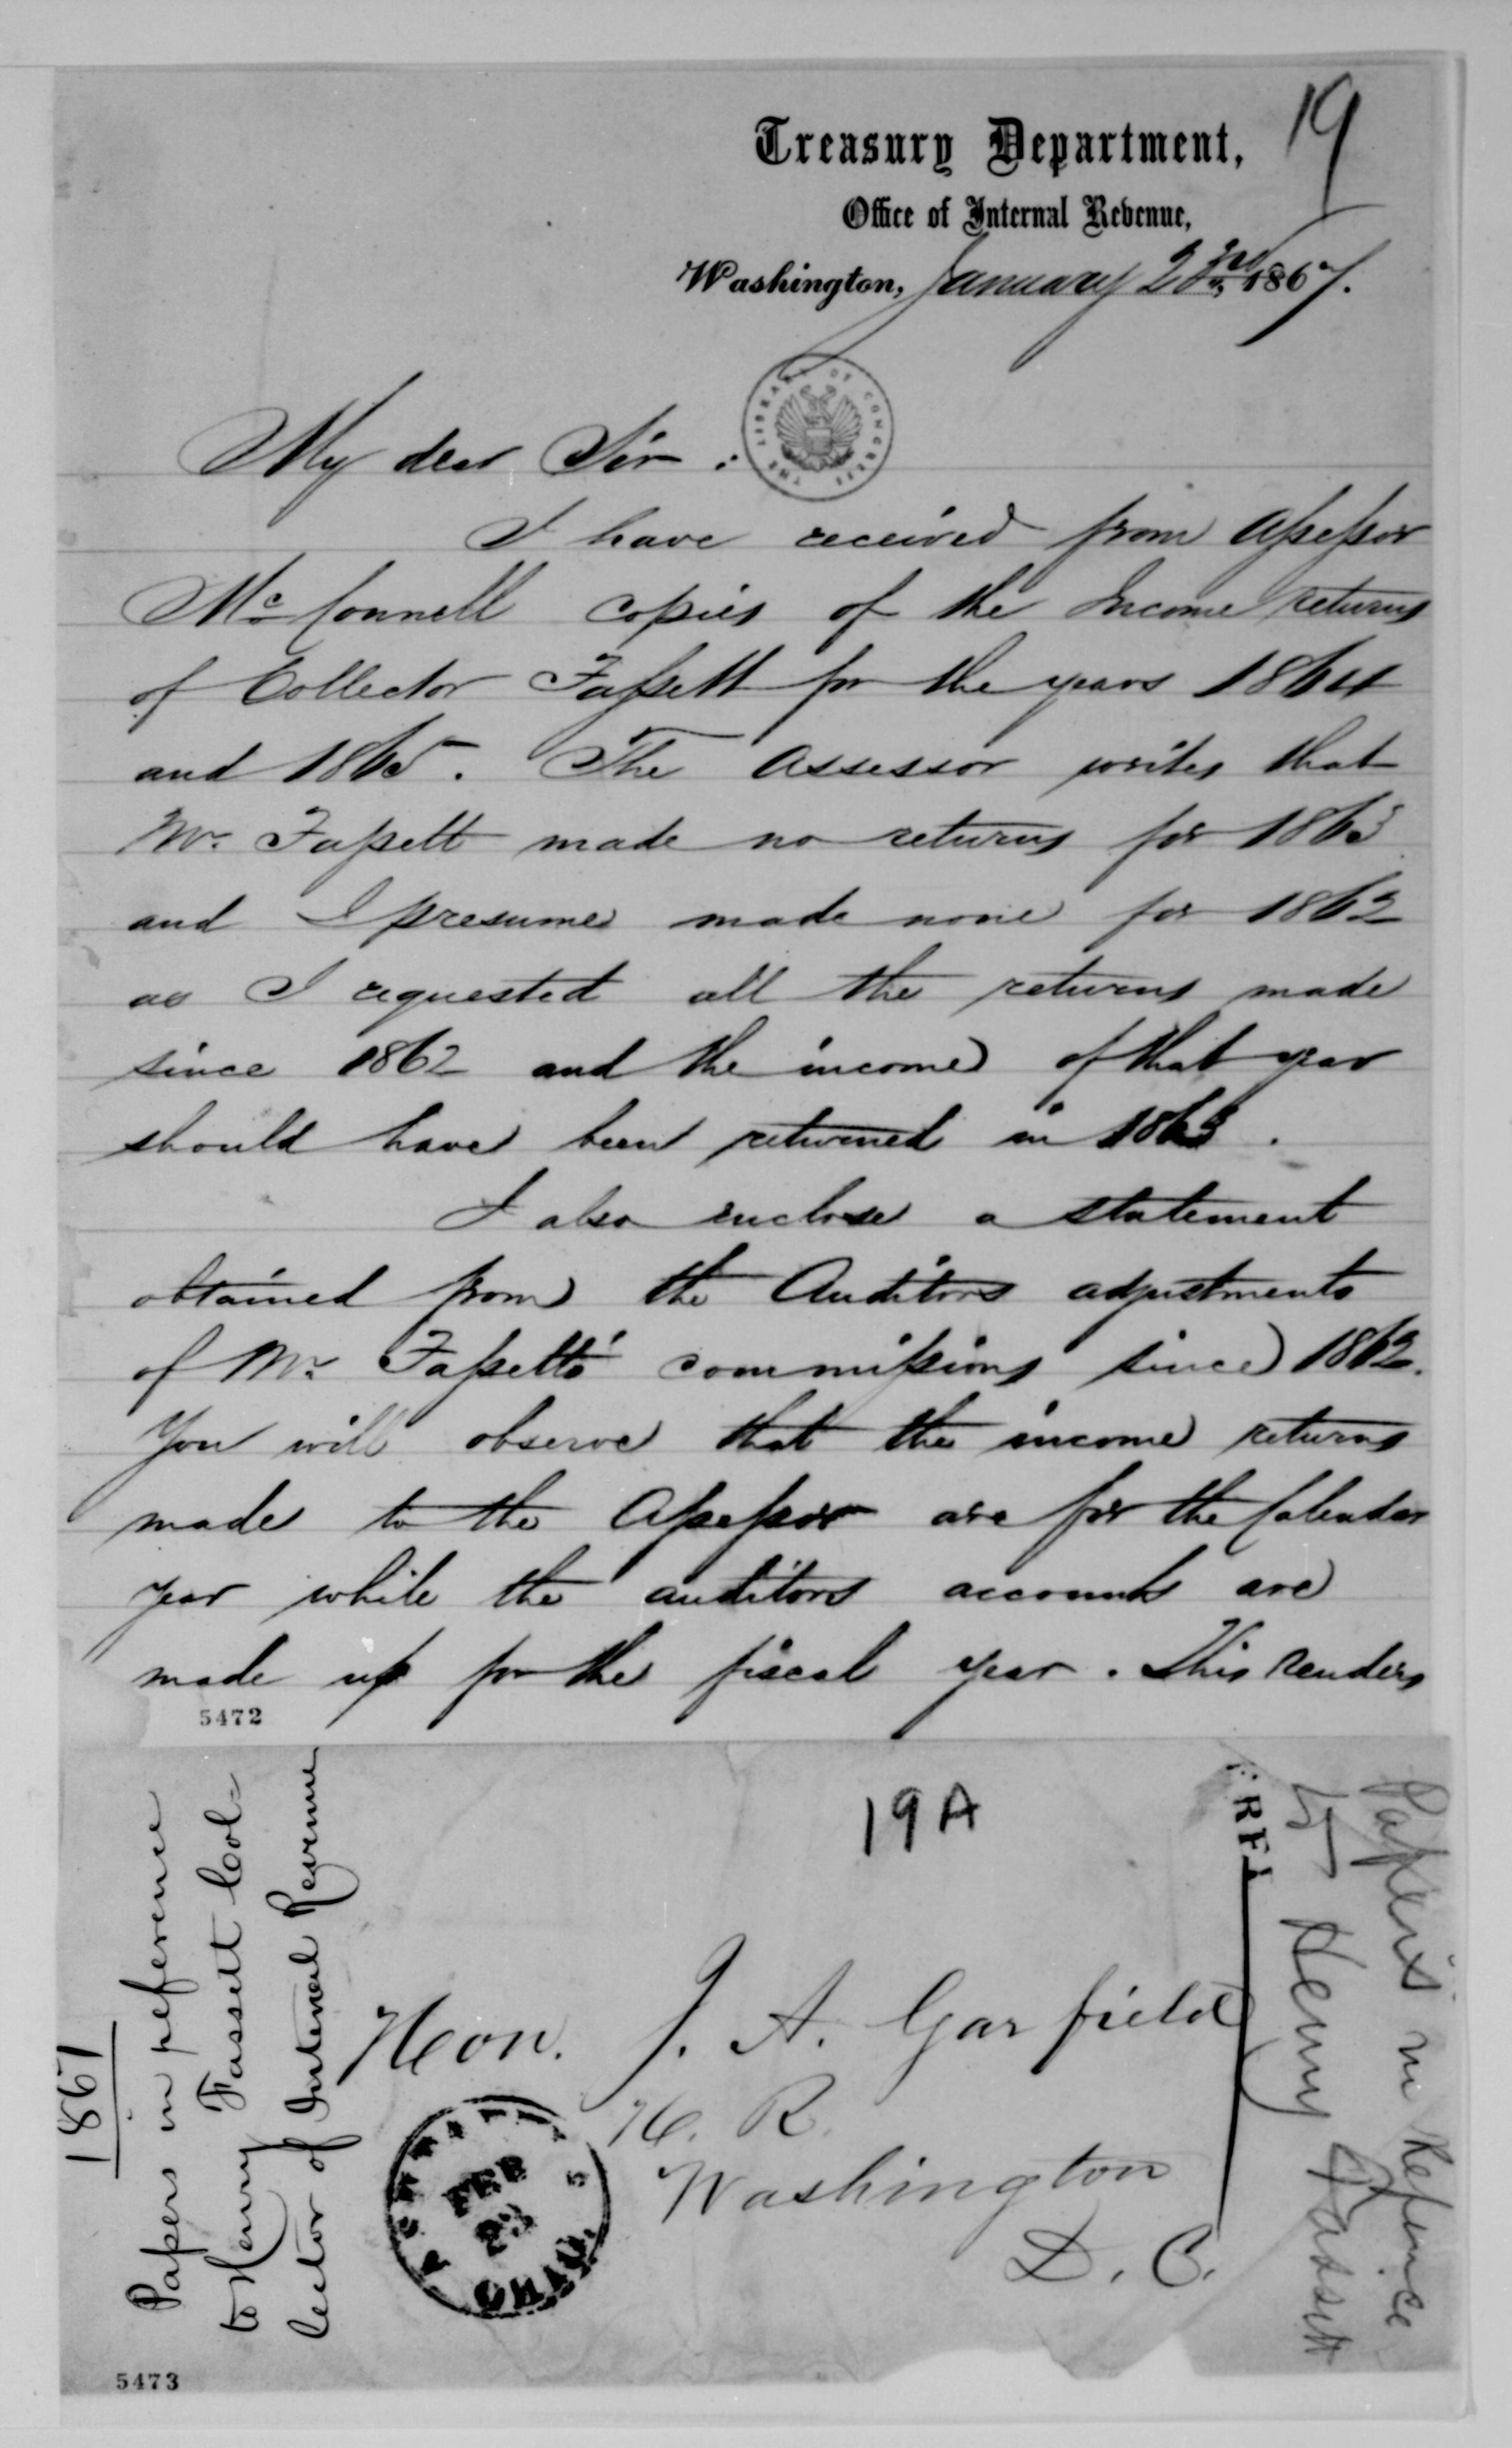 19
Treasury Department,
Office of Internal Revenue,
Washington, January 23rd, 1867.
THE LIBRARY OF CONGRESS
My dear Sir :
I have received from Assessor
McConnell copies of the Income returns
of Collector Fassett for the years 1864
and 1865. The Assessor writes that
Mr. Fassett made no returns for 1863
and I presume made none for 1862
as I requested all the returns made
since 1862 and the income of that year
should have been returned in 1863.
I also enclose a statement
obtained from the Auditors adjustments
of Mr. Fassett's commissions since 1862.
You will observe that the income returns
made to the Assessor are for the Calendar
year while the auditors accounts are
made up for the fiscal year. This renders
5472
1867
Papers in reference
to Henry Fassett Col-
lector of Internal Revenue
19A
Hon. J. A. Garfield
H. R.
Washington
D. C.
FEB
23
OHIO.
Papers in Reference
to Henry Fassett
5473